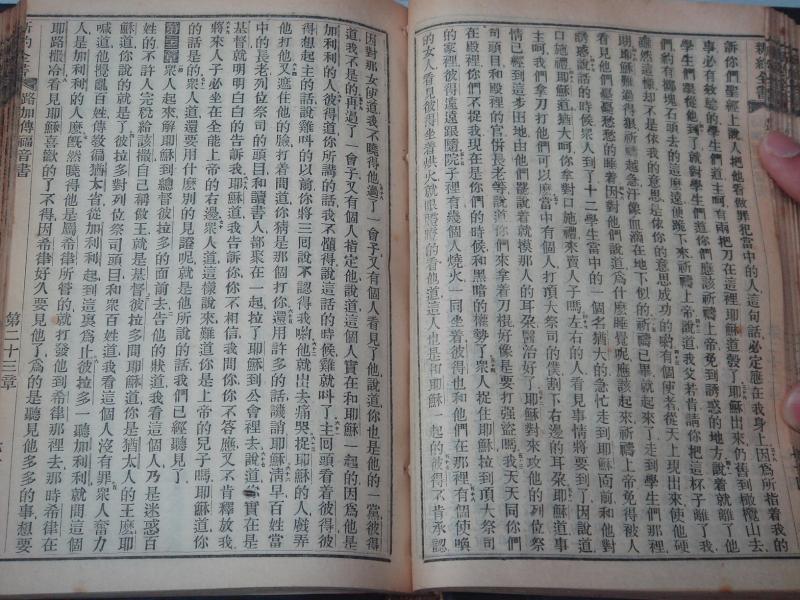 新約全書
訴你們聖經上說人把他看做罪犯當中的人這句話必定應在我身上因爲所指着我的
事必有效驗的學生們道主呵有兩把刀在這裡耶穌道彀了耶穌出來仍舊到橄欖山去
學生們跟從他到了就對學生們道你們應該祈禱上帝免到誘惑的地方說着就離了他
們約有擲塊石頭去的這麽遠便跪下來祈禱上帝說道我父若肯請你把這杯子離了我
雖然這樣却不是依我的意思是依你的意思成功的喲有個使者從天上現出來使他硬
朗耶穌過得狠祈禱越急汗像血滴在地下似的祈禱已畢就起來了走到學生們那裡
看見他們憂憂愁愁的睡着因對他們說道爲什麽睡覺呢應該起來祈禱上帝免得被人
誘惑說話的時候衆人到了十二學生當中的一個名猶大的急忙走到耶穌面前和他對
口施禮耶穌道猶大呵你拿對口施禮來賣人子嗎左右的人看見事情將要到了因說道
主呵我們拿刀打他們可以麽當中有個人打頂大祭司的僕割下右邊的耳朶耶穌道事
情已經到這步田地由他們罷說着就摸那人的耳朶醫治好了耶穌對來攻他的列位祭
司頭目和殿裡的官倂長老等說道你們來拿着刀棍好像是要打强盜嗎我天天同你們
在殿裡你們不捉我現在是你們的時候和黑暗的權勢了衆人捉住耶穌拉到頂大祭司
的家裡彼得遠遠跟隨院子裡有幾個人燒火一同坐着彼得也和他們在那裡有個使喚
的女人看見彼得坐着烘火就眼睜睜的看他道這人也是和耶穌一起的彼得不肯承認
因對那女便道我不曉得他過了一會子又有個人看見了他說道你也是他們一當彼得
道我不是的再過了一會子又有個人指定他說道這個人實在和耶穌一起的因爲他是
加利利的人彼得道你所講的話我不懂得說這話的時候雞就叫了主回頭看着彼得彼
得想起主的話說雞叫的以前你將三回說不認得我喲他就出去痛哭捉耶穌的人戲弄
他打他又遮住他的臉打着問道你猜是那個打你還用許多的話譏誚耶穌淸早百姓當
中的長老列位祭司的頭目和讀書人都聚在一起拉了耶穌到公會裡去說道你實在是
基督就明明白白的告訴我耶穌道我告訴你你不相信我問你你不答應又不肯釋放我
將來人子必坐在全能上帝的右邊衆人道這樣說來難道你是上帝的兒子嗎耶穌道你
的話是的衆人道還要用什麽別的見證呢就是他所說的話我們已經聽見了
第二十三章 衆人起來解耶穌到總督彼拉多的面前去告他的狀道我看這個人乃是迷惑百
姓的不許人完稅給該撒自己稱做王就是基督彼拉多問耶穌道你是猶太人的王麽耶
穌道你說的就是了彼拉多對列位祭司頭目和衆百姓道我看這個人沒有罪衆人奮力
喊道他攪亂百姓傳敎徧猶太省從加利利起到這裏爲止彼拉多一聽加利利就問這個
人是加利利的人麽旣然曉得他是屬希律所管的就打發他到希律那裡去那時希律在
耶路撒冷看見耶穌喜歡的了不得因希律好久要見他了爲的是聽見他多多的事想要
新約全書 路加傳福音書 第二十三章